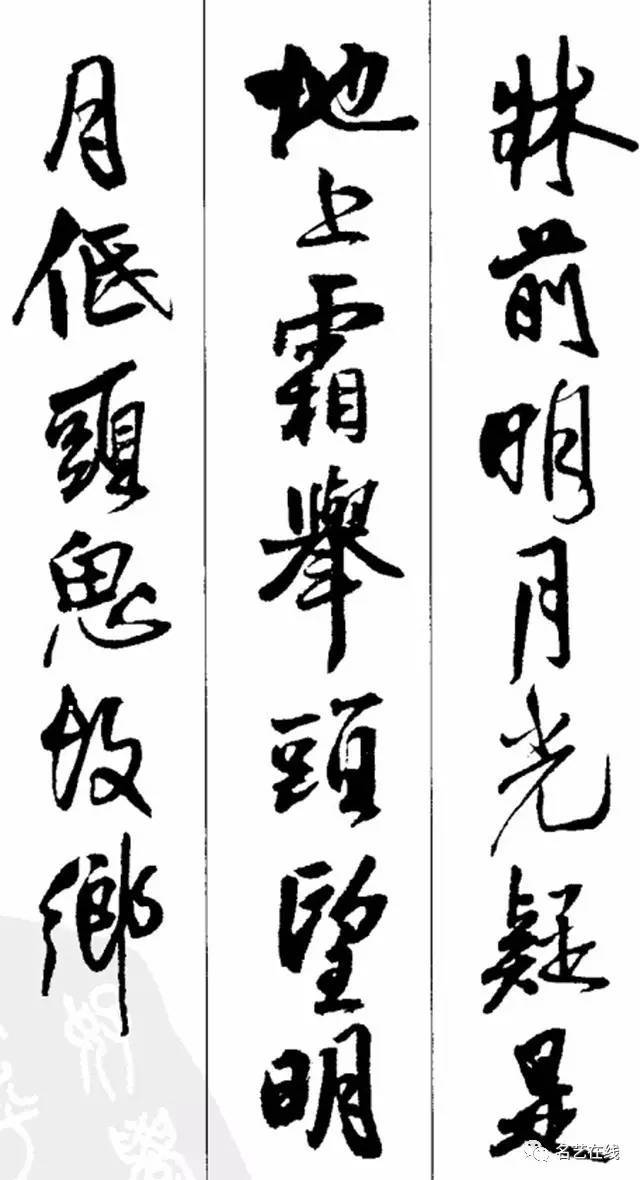 牀前明月光疑是
地上霜舉頭望明
月低頭思故鄉
名艺在线